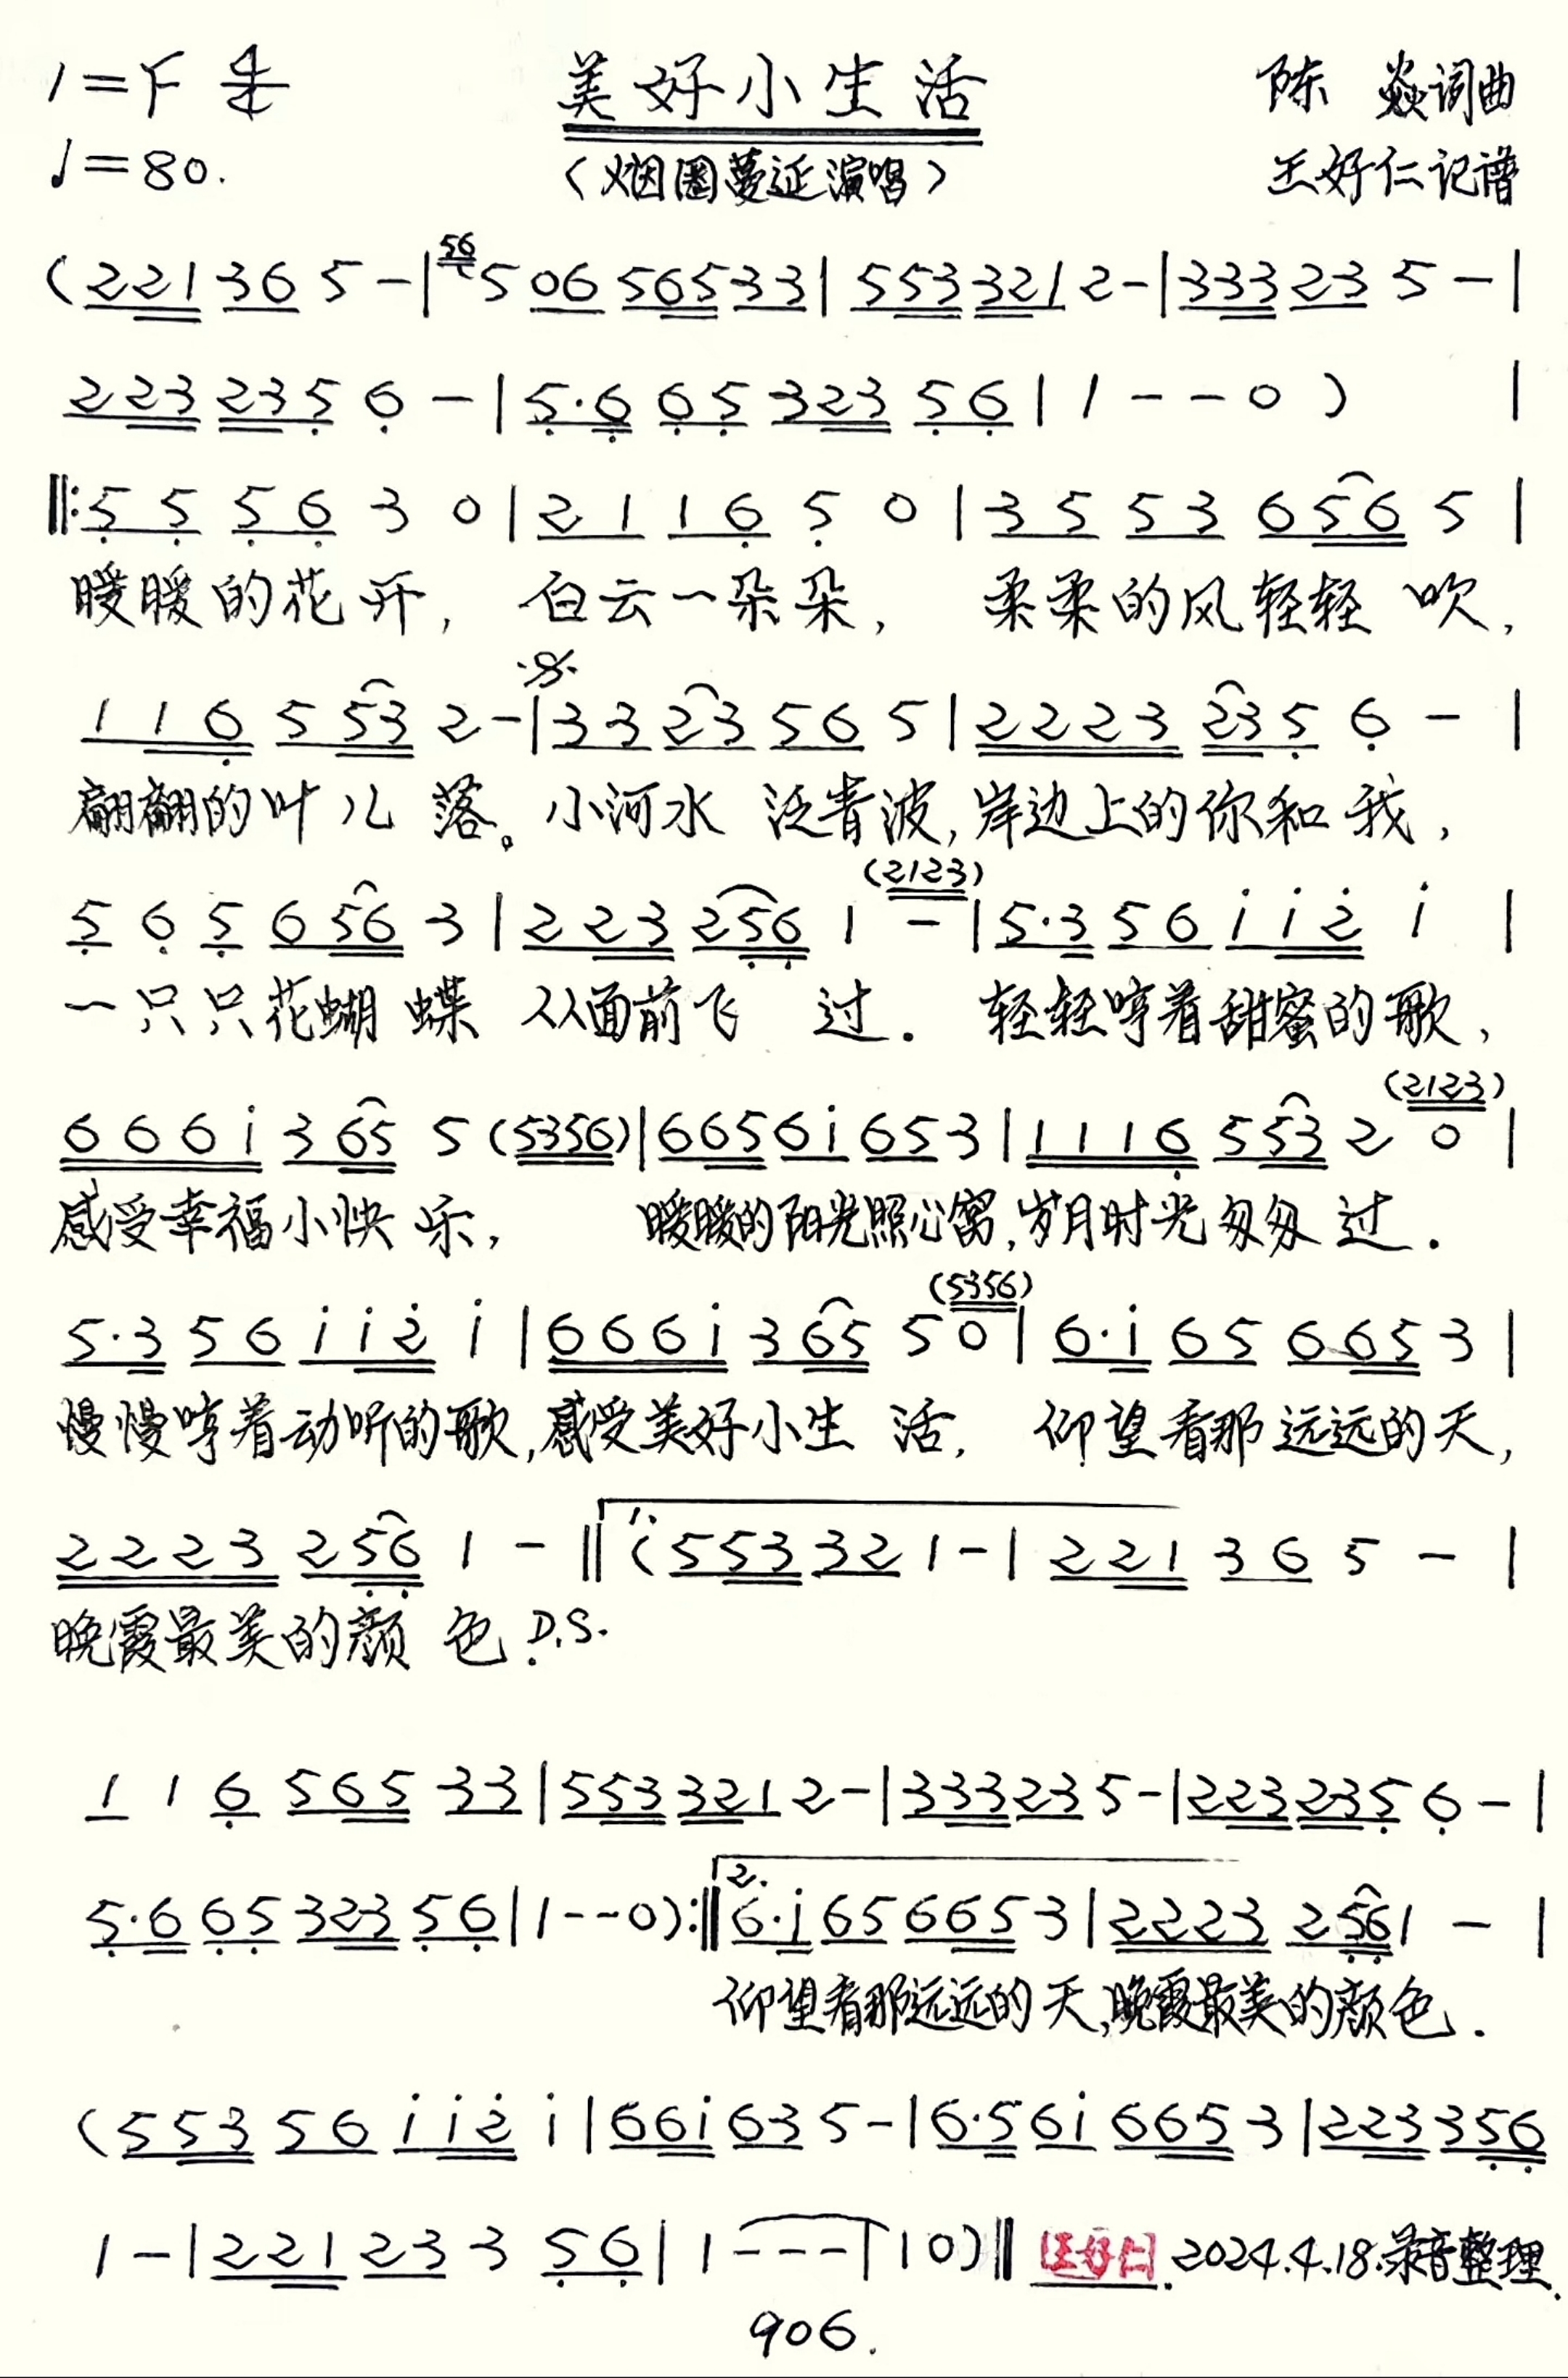 1=F 4/4 美好小生活 陈 焱词曲
♩=80. (烟圈蔓延演唱) 王好仁记谱
56
(221 36 5 -|5 06 565 33|553 321 2-|333 23 5 -|
223 235 6 -|5·6 65 323 56|1 - - 0 ) |
‖:5 5 5 6 3 0|2 1 1 6 5 0|3 5 5 3 6 56 5|
暖暖的花开, 白云一朵朵, 柔柔的风轻轻 吹,
1 1 6 5 53 2-|33 23 56 5|2223 235 6 - |
翩翩的叶儿 落。小河水 泛青波,岸边上的你和 我,
(2123)
5 6 5 6 56 3|2 23 256 1 -|5·3 56 i i 2̇ i |
一只只花蝴 蝶 从面前飞 过. 轻轻哼着甜蜜的歌,
(2123)
666i 3 65 5 (5356)|6656i 653|1116 553 2 0|
感受幸福小快 乐, 暖暖的阳光照心窝,岁月时光匆匆 过.
(5356)
5·3 56 i i 2̇ i|666i 3 65 5 0|6·i 65 6653|
慢慢哼着动听的歌,感受美好小生 活, 仰望看那远远的天,
1.
2223 256 1 - ‖(553 32 1-|221 36 5 - |
晚霞最美的颜 色. D.S.
1 1 6 565 33|553 321 2-|333 23 5-|223 235 6-|
2.
5·6 65 323 56|1--0):‖6·i 65 665 3|2223 256 1 - |
仰望看那远远的天,晚霞最美的颜色.
(553 56 i i 2̇ i|66i 63 5-|6·5 6i 665 3|223 356
1 -|221 23 3 56|1 - - -|10)‖ 王好仁. 2024.4.18.录音整理.
906.